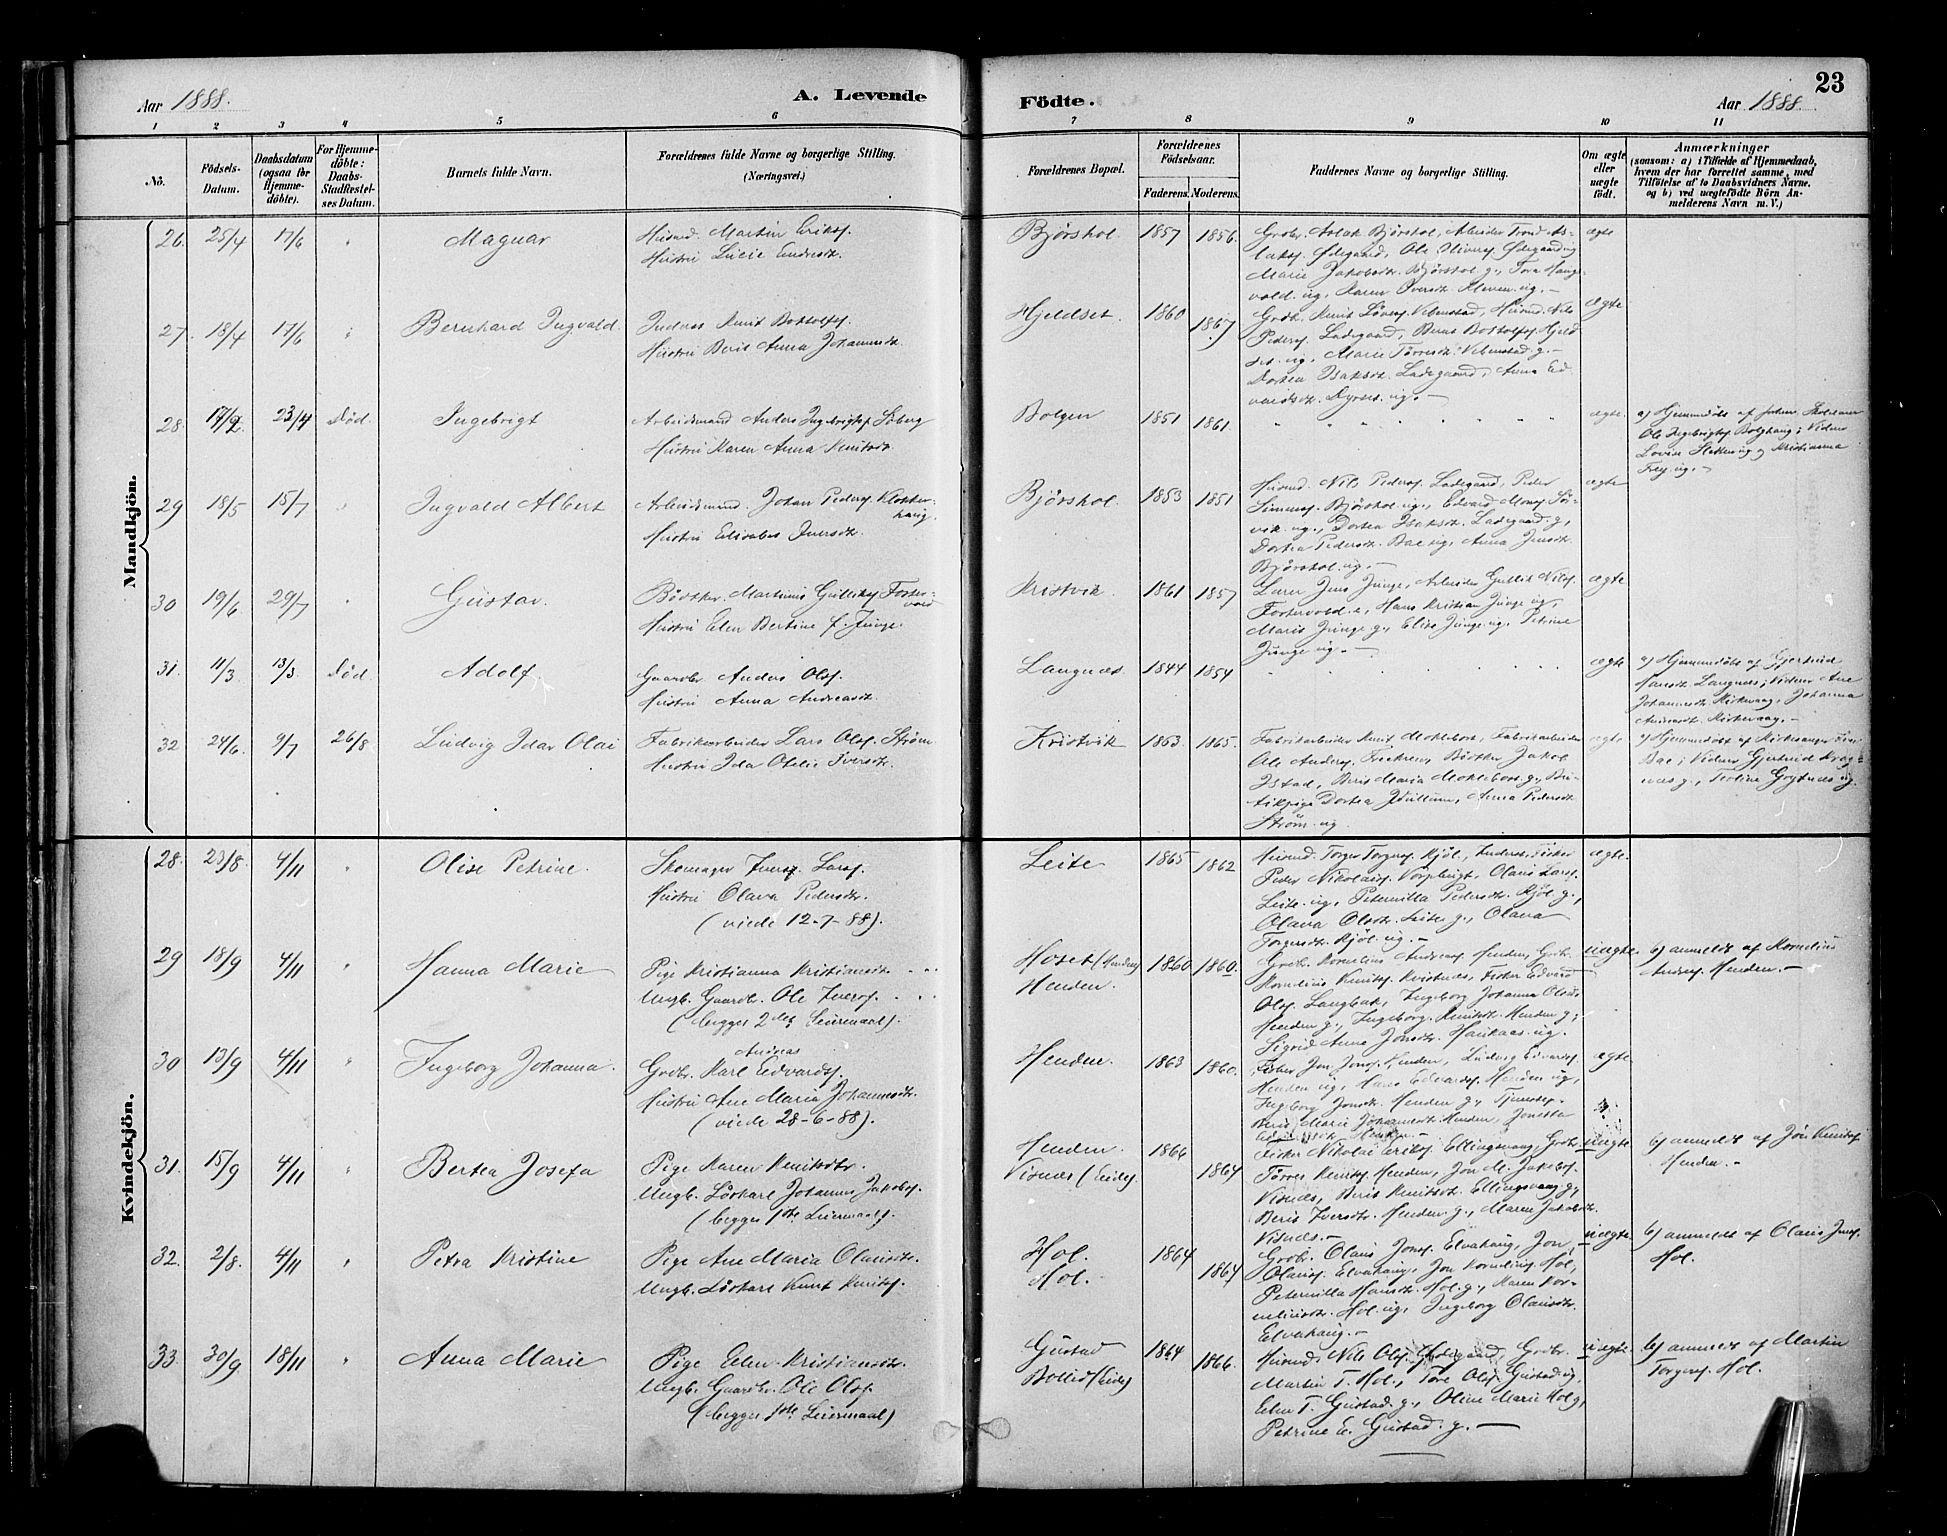 23
Aar 1888.
A. Levende
Födte.
Aar 1888.
1 2 3 4 5 6 7 8 9 10 11
Nô.
Födsels-
Datum.
Daabsdatum
(ogsaa for
Hjemme-
döbte).
For Hjemme-
döbte:
Daabs-
Stadfæstel-
ses Datum.
Barnets fulde Navn.
Forældrenes fulde Navne og borgerlige Stilling.
(Næringsvei.)
Forældrenes Bopæl.
Forældrenes
Födselsaar.
Faderens. Moderens.
Faddernes Navne og borgerlige Stilling.
Om ægte
eller
uægte
födt.
Anmærkninger
(saasom: a) i Tilfælde af Hjemmedaab,
hvem der har forrettet samme, med
Tilföielse af to Daabsvidners Navne,
og b) ved uægtefödte Börn An-
melderens Navn m. V.)
Mandkjön.
26. 25/4 17/6 " Magnar
Husmd. Martin Eriks.
Hustru Lucie Endresdt.
Bjørshol. 1857 1856.
Grdbr. Aslak Bjørshol, Arbeider Trond As-
laks. Ødegaard, Ole Olivers. Ødegaard ug
Marie Jakobsdt. Bjørshol g., Tora Haug-
vold. ug, Karen Iversdt. Kleven. ug. -
ægte
27. 18/4 17/6 " Bernhard Ingvald.
Inders. Knut Bottolfs.
Hustru Berit Anna Johannesdt.
Hjeldset. 1860 1867
Grdb. Knut Sövers. Vebenstad, Husmd. Nils
Peders. Ladegaard, Bernt Bottolfs. Hjeld
set. ug, Marie Törresdt. Vebenstad g. -
Dortea Isaksdt. Ladegaard, Anna Ed
vardsdt. Dyrset. ug. -
ægte
28. 17/2 23/4 Död. Ingebrigt
Arbeidsmand Anders Ingebrigts. Soberg
Hustru Karen Anna Knutsdt.
Bolgen 1851 1861.
ægte.
a) Hjemmdöbt af
Ole Ingebrigts. Bolghaug; Vidner
Lovise Sletten ug og Kristianna
Frey. ug. -
29 18/5 15/7 " Ingvald Albert
Arbeidsmand Johan Peders. Klokker-
haug.
Hustru Elisabet Iversdt.
Bjørshol. 1853 1851
Husmd. Nils Peders. Ladegaard, Peder
Simons. Bjørshol. ug., Edvard Mons. Sör-
vik. ug., Dortea Isaksdt. Ladegaard. g,
Dortea Pedersdt. Bae ug, Anna Jensdt.
Bjørshol. ug. -
ægte
30 19/6 29/7 " Gustav.
Bödtker. Martinus Gulliks. Foster-
vold
Hustru Elen Bertine f. Junge.
Kristvik. 1861 1857
Lærer Jens Junge, Arbeider Gullik Nils.
Fostervold. e, Hans Kristian Junge ug,
Marit Junge g., Elise Junge. ug, Petrine
Junge ug. -
ægte
31. 11/3 13/3 Död. Adolf.
Gaardbr Anders Ols.
Hustru Anna Andreasdt.
Langnæs. 1844 1854
ægte
a) Hjemmdöbt af Gjertrud
Hansdt. Langnæs; Vidner Ane
Johannesdt. Kirkevaag, Johanna
Andersdt. Kirkevaag. -
32 24/6. 9/7 26/8 Ludvig Idar Olai
Fabrikarbeider Lars Ols. Ström
Hustru Ida Otelie Iversdt.
Kristvik 1863 1865.
Fabrikarbeider Knut Mekleborst, Fabrikarbeider
Ole Anders. Bödtker Jakob
Istad, Berit Maria Mekleborst g., Bu-
tikpige Dortea Hullum, Anna Pedersdt
Ström. ug.
ægte
a) Hjemmdöbt af Kirkesanger Iver
Bae; Vidner Gjertrud Krag-
næs g., Teoline Grytnæs ug.
Kvindekjön.
28. 23/8. 4/11 " Olise Petrine.
Skomager Ivers. Lars.
Hustru Olava Pedersdt.
(viede 12-7-88).
Leite 1865 1862
Husmd. Torger Torgers. Kjöl., Inderst, Fisker
Peder Nikolais. Vorpbugt, Olaus Lars.
Leite. ug, Peternilla Pedersdt. Kjöl. g.,
Olava Olsdt. Leite g., Olava
Torgersdt. Kjöl. ug. -
ægte.
29 18/9 4/11 " Hanna Marie
Pige Kristianna Kristiansdt. . . .
Ungk. Gaardbr. Ole Ivers. . . .
(begges 2det Leiermaal).
Hoset (Henden)
Henden.
1860 1860.
Grdb. Kornelius Anders. Henden, Grdb.
Kornelius Knuts. Kvistnæs, Fisker Edvard
Ols. Langbak, Ingeborg Johanna Olsdt
Henden g., Ingeborg. Knutsdt. Henden g;
Sigrid Anne Jonsdt. Haukaas. ug.
uægte.
b) anmeldt af Kornelius
Anders. Henden. -
30 13/9 4/11 " Ingeborg Johanna.
Andreas
Grdbr. Karl Edvards.
Hustru Ane Maria Johannesdt.
(viede 28-6-88).
Henden. 1863 1860.
Fisker Jon Jons. Henden, Ludvig Edvards.
Henden ug, Hans Edvards. Henden ug,
Ingeborg Jonsdt. Henden g., Tjenestep.
Berit Marie Johannesdt Henden, Jonetta
Henden -
ægte.
31. 15/9 4/11 " Bertea Josefa
Pige Karen Knutsdt.
Ungk. Löskarl Johannes Jakobs.
(begges 1ste Leiermaal).
Henden.
Visnæs (Eide).
1866 1864
Fisker Nikolai Eriks. Ellingsvaag, Grdb.
Törres Knuts. Henden, Jon M. Jakobs.
Visnæs, Berit Knutsdt. Ellingsvaag g.,
Berit Iversdt. Henden. g., Maren Jakobsdt.
Visnæs. -
uægte
b) anmeldt af Jon Knuts.
Henden. -
32. 2/8. 4/11 " Petra Kristine
Pige Ane Maria Olausdt.
Ungk. Löskarl Knut Knuts.
Hol.
Hol.
1864 1864
Grdb. Olaus Jons. Elvahaug, Jon
Olaus. Elvahaug, Jon Kornelius. Hol,
Peternilla Hansdt. Hol. g., Karen Kor-
neliusdt. Hol. ug, Ingeborg Olausdt.
Elvahaug. -
uægte.
b) anmeldt af Olaus Jons.
Hol.
33. 30/9 18/11 " Anna Marie
Pige Elen Kristiansdt.
Ungk. Gaardbr. Ole Ols.
(begges 1ste Leiermaal)
Gustad
Bollid (Eide)
1864 1866.
Husmd. Nils Ols. Ødegaard, Grdbr.
Martin T. Hol, Tore Ols. Gustad. ug,
Elen T. Gustad. g., Oline Marie Hol g,
Petrine E. Gustad. g. -
uægte
b) anmeldt af Martin
Torgers. Hol.